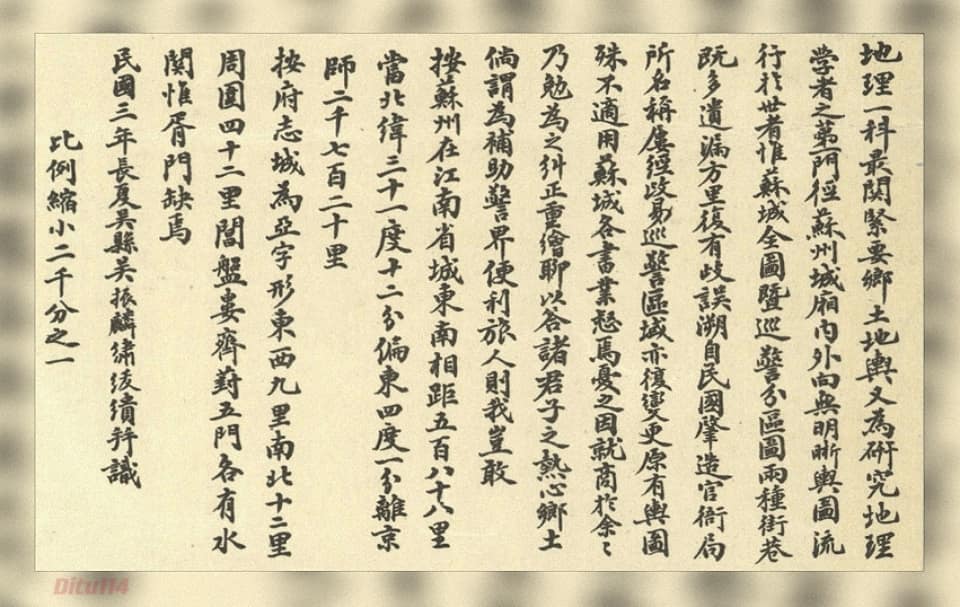 地理一科最関緊要鄉土地輿又為研究地理
学者之第一門徑蘇州城廂内外向無明晰輿圖流
行於世者惟蘇城全圖暨巡警分區圖兩種街巷
既多遺漏方里復有歧誤溯自民國肇造官衙局
所名稱屢經改易巡警區域亦復變更原有輿圖
殊不適用蘇城各書業慭焉憂之因就商於余〻
乃勉為之糾正重繪聊以答諸君子之熱心鄉土
倘謂為補助警界便利旅人則我豈敢
按蘇州在江南省城東南相距五百八十八里
當北緯三十一度十二分偏東四度一分離京
師二千七百二十里
按府志城為亞字形東西九里南北十二里
周圍四十二里閶盤婁齊葑五門各有水
関惟胥門缺焉
民國三年長夏吳縣吳振麟繡
比例縮小二千分之一
Ditu114